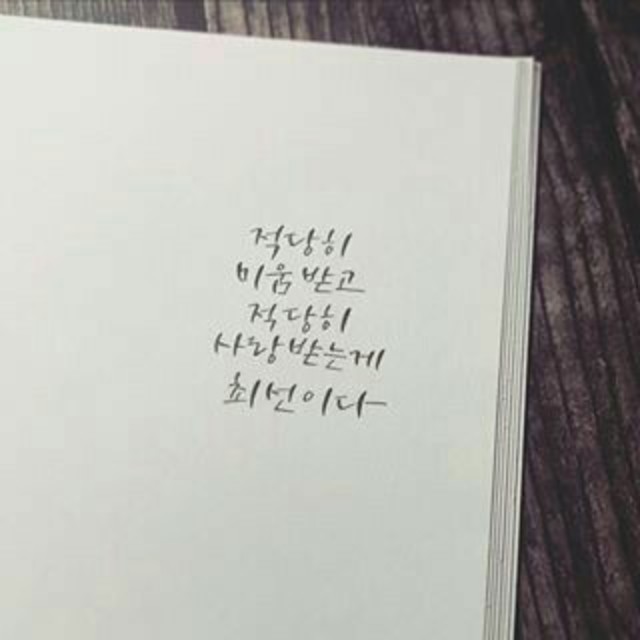 적당히
미움받고
적당히
사랑받는게
최선이다